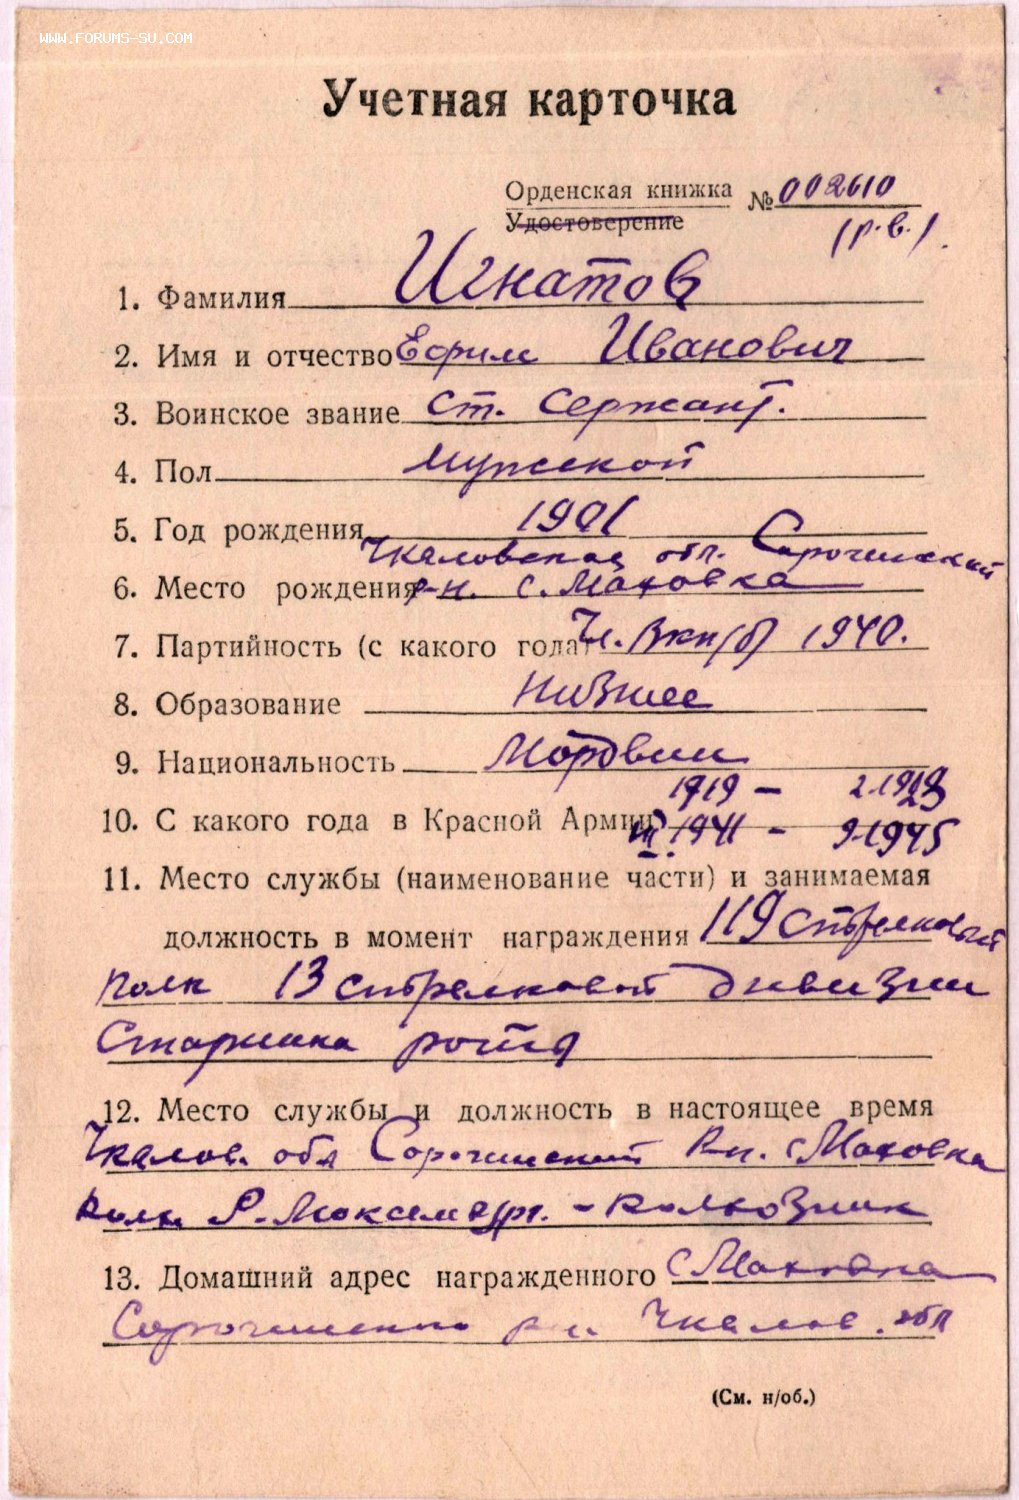 WWW.FORUMS-SU.COM
Учетная карточка
Орденская книжка № 002610
Удостоверение (р.в.).
1. Фамилия Игнатов
2. Имя и отчество Ефим Иванович
3. Воинское звание ст. сержант.
4. Пол мужской
5. Год рождения 1901
Чкаловская обл. Сорочинский
6. Место рождения р-н. с. Маховка
7. Партийность (с какого года) Чл. ВКП(б) 1940.
8. Образование низшее
9. Национальность Мордвин
1919 —
10. С какого года в Красной Армии 1941 - 9.1945
11. Место службы (наименование части) и занимаемая
должность в момент награждения 119 стрелковый
полк 13 стрелковой дивизии
Старшина роты
12. Место службы и должность в настоящее время
Чкалов. обл Сорочинский Рн. с Маховка
колх. Р. Люксембург. - колхозник
13. Домашний адрес награжденного с Маховка
Сорочинский рн. Чкалов. обл
(См. н/об.)